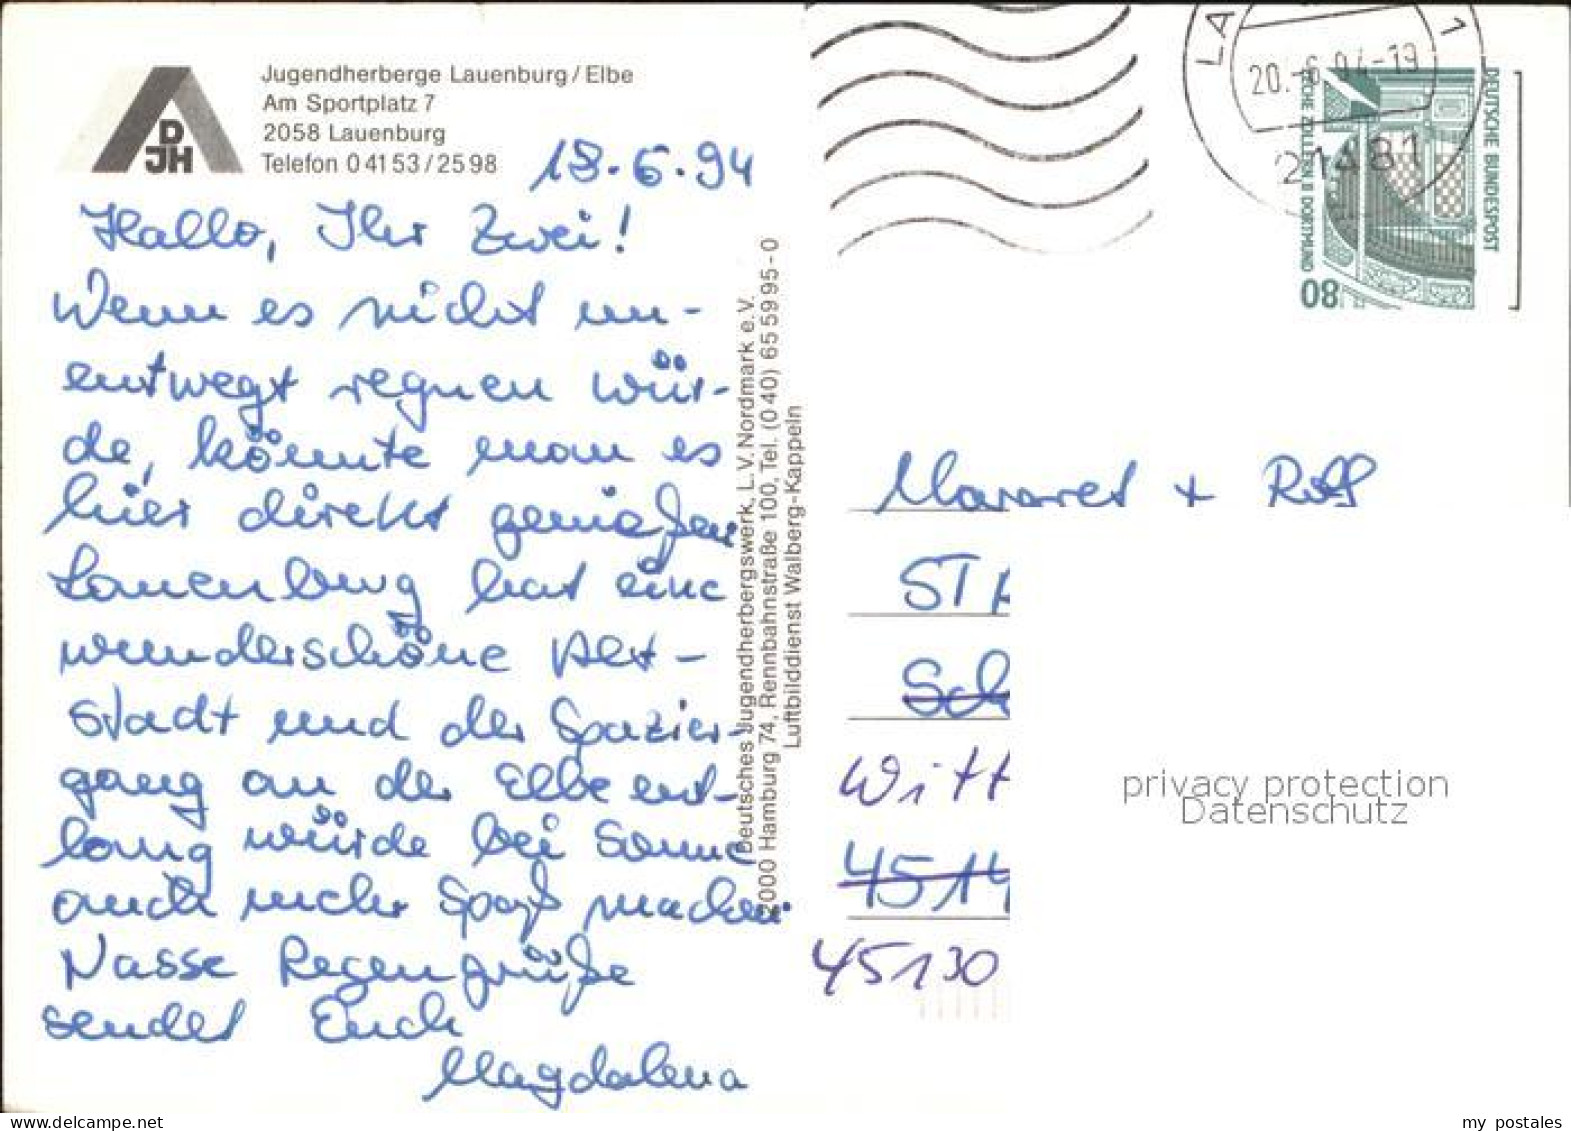 DJH
Jugendherberge Lauenburg/Elbe
Am Sportplatz 7
2058 Lauenburg
Telefon 0 41 53 / 25 98
18.6.94
Hallo, Ihr Zwei!
Wenn es nicht un-
entwegt regnen wür-
de, könnte man es
hier direkt genießen
Lauenburg hat eine
wunderschöne Alt-
stadt und der Spazier-
gang an der Elbe ent-
lang würde bei Sonne
auch mehr Spaß machen
Nasse Regengrüße
sendet Euch
Magdalena
Deutsches Jugendherbergswerk, L.V. Nordmark e.V.
2000 Hamburg 74, Rennbahnstraße 100, Tel. (0 40) 65 59 95-0
Luftbilddienst Walberg-Kappeln
LA
1
20.-6.94-19
21481
DEUTSCHE BUNDESPOST
ZECHE ZOLLERN II DORTMUND
80
Margret + Rolf
ST
Sch
Witt
4514
45130
privacy protection
Datenschutz
delcampe.net
my_postales